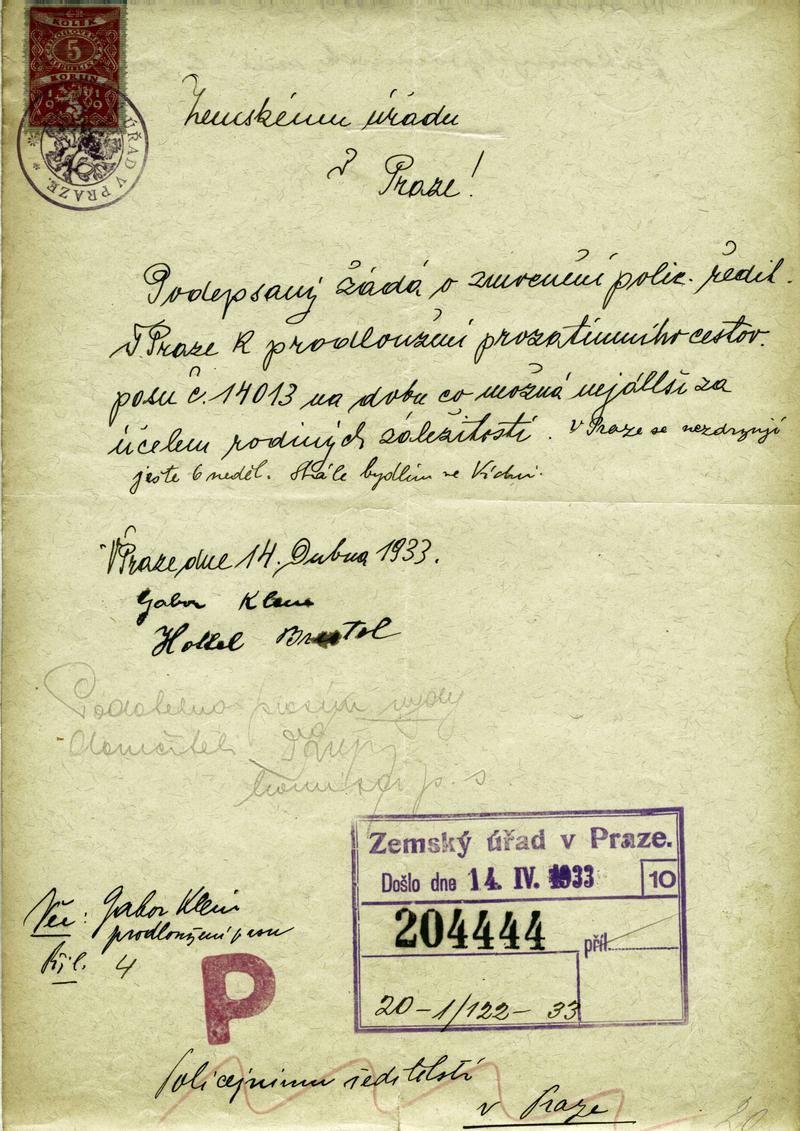 KOLEK
5
KORUN
1919
ÚŘAD V PRAZE.
Zemskému úřadu
v Praze!
Podepsaný žádá o zmocnění polic. ředit.
v Praze k prodloužení prozatimního cestov.
pasu č. 14013 na dobu co možná nejdllší za
účelem rodiných záležitostí. V Praze se nezdrzuji
ješte 6 neděl. Stále bydlím ve Vídni.
V Praze dne 14. Dubna 1933.
Gabor Klein
Hottel Bristol
prosím
Zemský úřad v Praze.
Došlo dne 14. IV. 1933 10
204444
příl.
20-1/122-33
Věc: Gabor Klein
prodloužení pasu
Příl. 4
P
Policejnimu ředitelství
v Praze
20